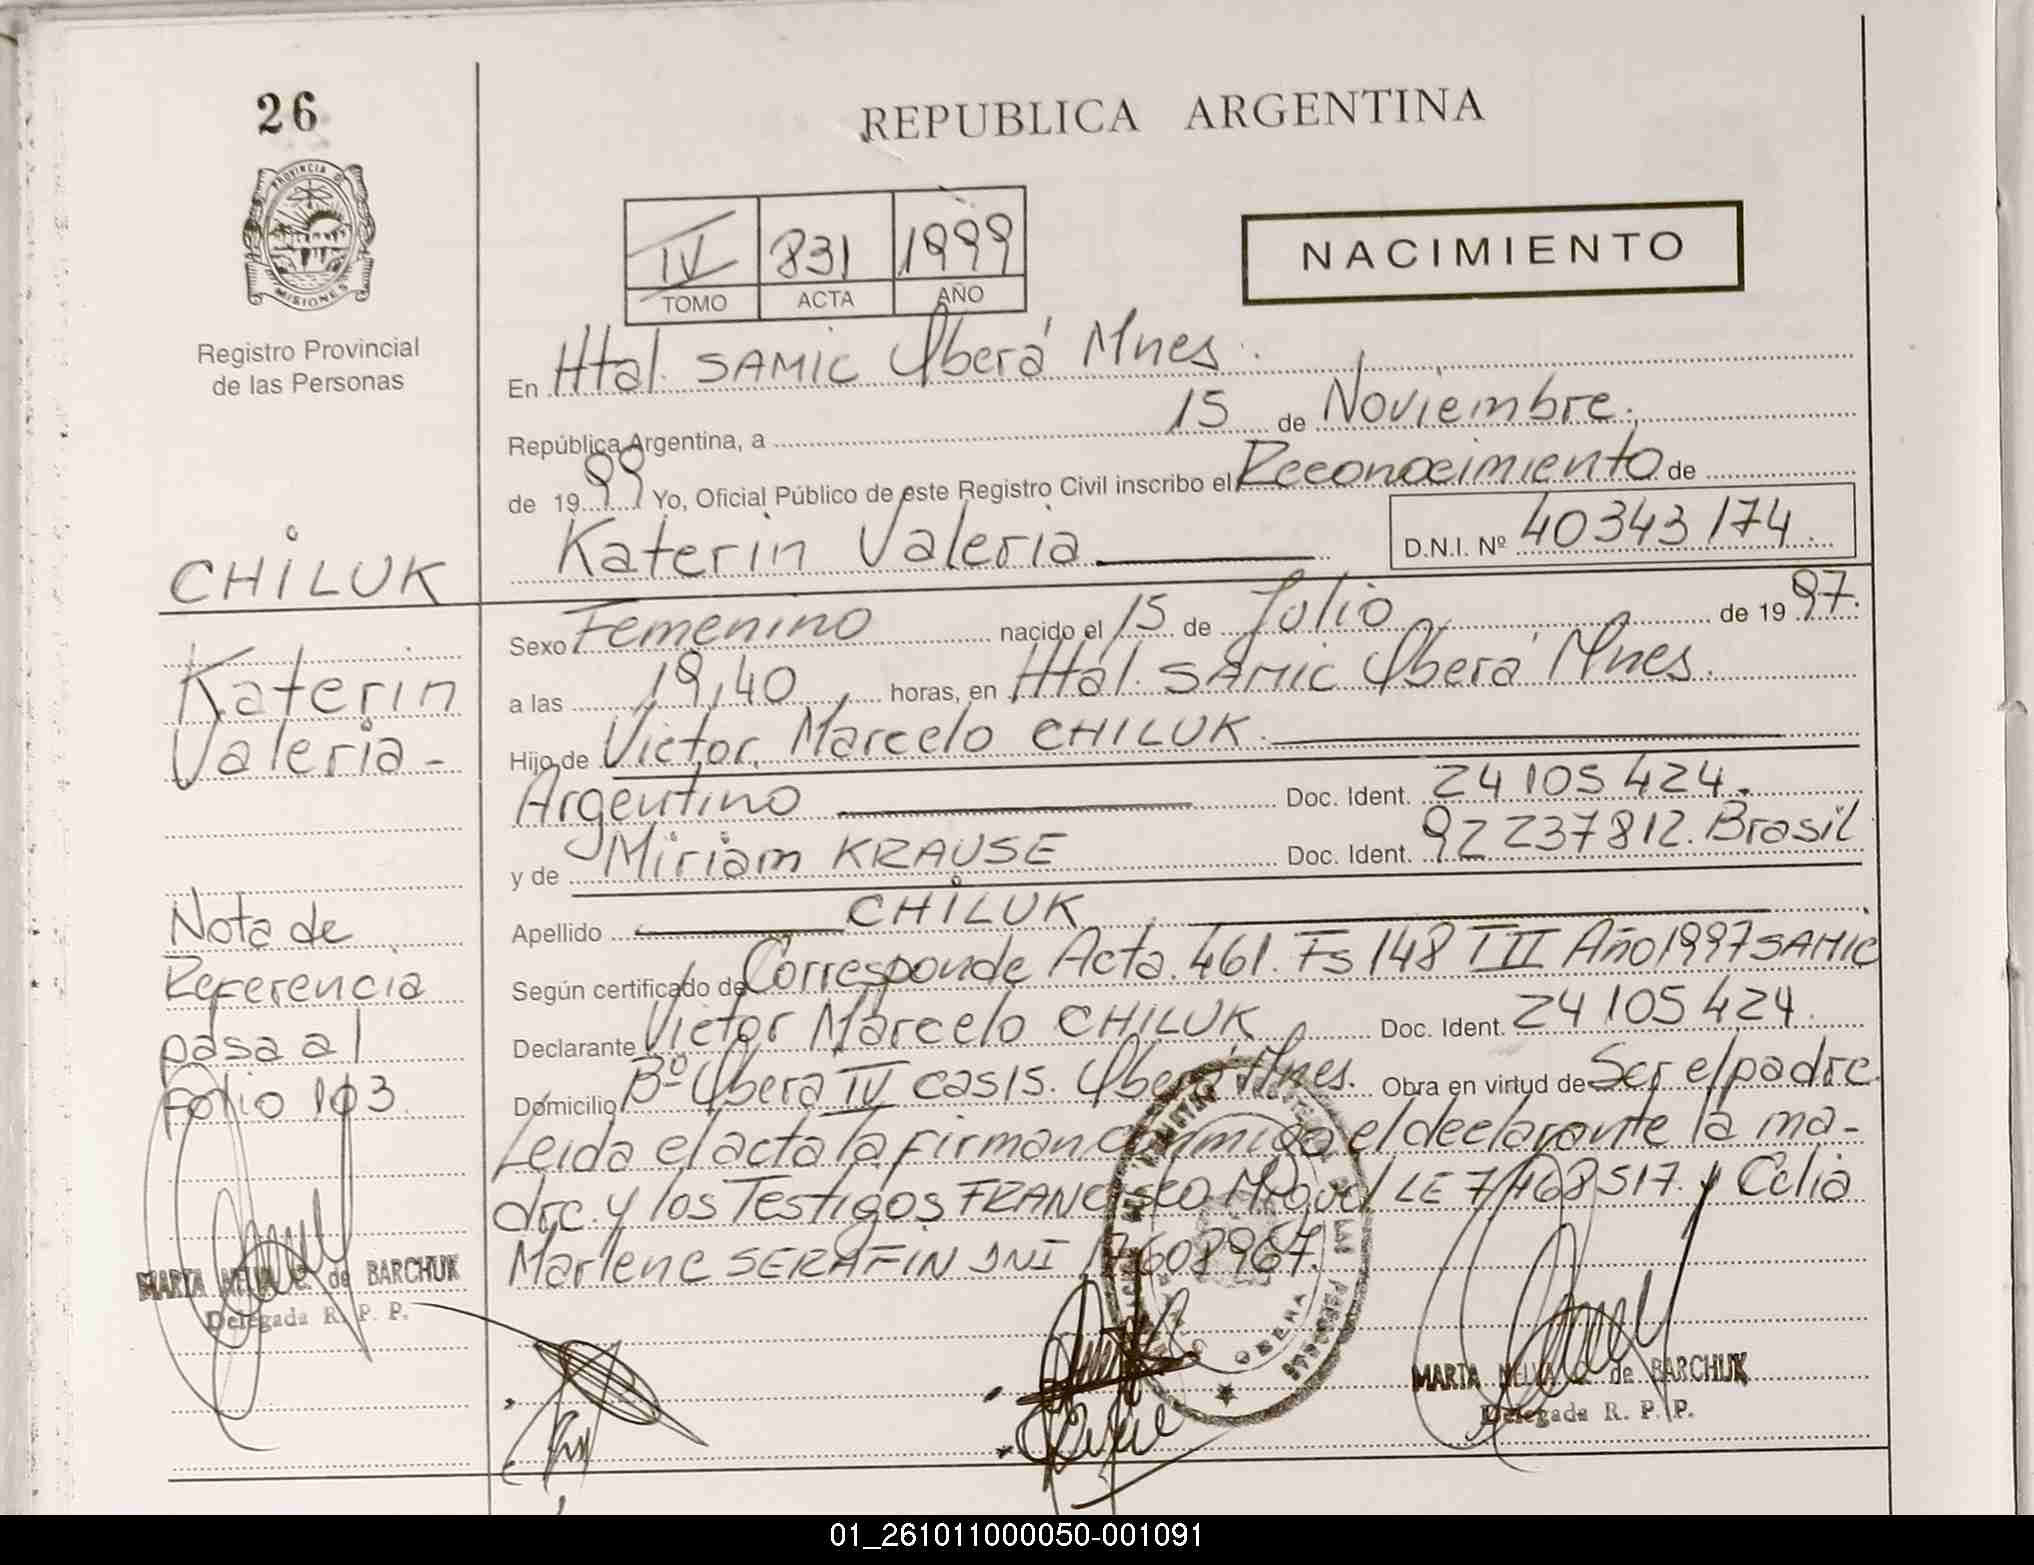 26
REPUBLICA ARGENTINA
PROVINCIA D
MISIONES
IV 831 1999
TOMO ACTA AÑO
NACIMIENTO
Registro Provincial
de las Personas
En Htal. SAMIC Oberá Mnes.
República Argentina, a 15 de Noviembre.
de 1999 Yo, Oficial Público de este Registro Civil inscribo el Reconocimiento de
Katerin Valeria
D.N.I. Nº 40343174
CHILUK
Katerin
Valeria -
Sexo Femenino nacido el 15 de Julio de 1997.
a las 19,40 horas, en Htal. SAMIC Oberá Mnes.
Hijo de Victor Marcelo CHILUK.
Argentino Doc. Ident. 24105424.
y de Miriam KRAUSE Doc. Ident. 92237812. Brasil
Apellido CHILUK
Según certificado de Corresponde Acta. 461. Fs 148 T II Año 1997 SAMIC
Declarante Victor Marcelo CHILUK Doc. Ident. 24105424.
Domicilio Bº Obera IV cas 15. Oberá Mnes. Obra en virtud de Ser el padre
Leida el acta la firman conmigo el declarante la ma-
dre y los Testigos FRANCISCO Miguel LE 7468517. y Celia
Marlene SERAFIN DNI 17608967.
Nota de
Referencia
pasa al
folio 103.
MARTA NELVA de BARCHUK
Delegada R. P. P.
OBERA
MARTA NELVA de BARCHUK
Delegada R. P. P.
01_261011000050-001091